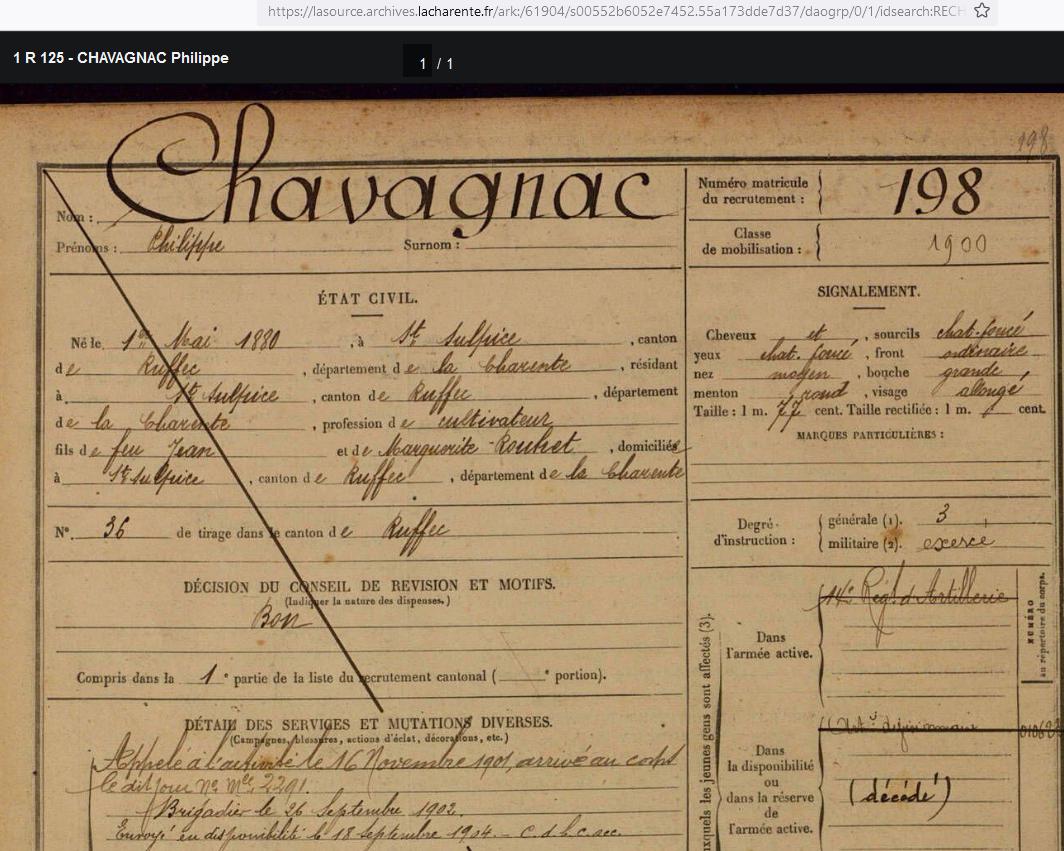 https://lasource.archives.lacharente.fr/ark:/61904/s00552b6052e7452.55a173dde7d37/daogrp/0/1/idsearch:RECH
1 R 125 - CHAVAGNAC Philippe
1 / 1
198
Chavagnac
Nom :
Prénoms : Philippe Surnom :
Numéro matricule du recrutement : 198
Classe de mobilisation : 1900
ÉTAT CIVIL.
Né le 1er Mai 1880, à St Sulpice, canton
de Ruffec, département de la Charente, résidant
à St Sulpice, canton de Ruffec, département
de la Charente, profession de cultivateur
fils de feu Jean et de Marguerite, domiciliés
à St Sulpice, canton de Ruffec, département de la Charente
N° 36 de tirage dans le canton de Ruffec
SIGNALEMENT.
Cheveux et, sourcils chat. foncé
yeux chat. foncé, front ordinaire
nez moyen, bouche grande
menton rond, visage allongé
Taille : 1 m. 77 cent. Taille rectifiée : 1 m. cent.
MARQUES PARTICULIÈRES :
Degré d'instruction : générale (1). 3
militaire (2). exercé
DÉCISION DU CONSEIL DE REVISION ET MOTIFS.
(Indiquer la nature des dispenses.)
Bon
Compris dans la 1e partie de la liste du recrutement cantonal ( e portion).
DÉTAIL DES SERVICES ET MUTATIONS DIVERSES.
(Campagnes, blessures, actions d'éclat, décorations, etc.)
Appelé à l'activité le 16 Novembre 1901, arrivé au corps
le dit jour No Mle 2291.
Brigadier le 26 Septembre 1902.
Envoyé en disponibilité le 18 Septembre 1904. – c. d. b. c. acc.
uxquels les jeunes gens sont affectés (3).
Dans l'armée active.
Régt d'Artillerie
NUMÉRO au répertoire du corps.
Dans
la disponibilité
ou
dans la réserve
de
l'armée active.
(décédé)